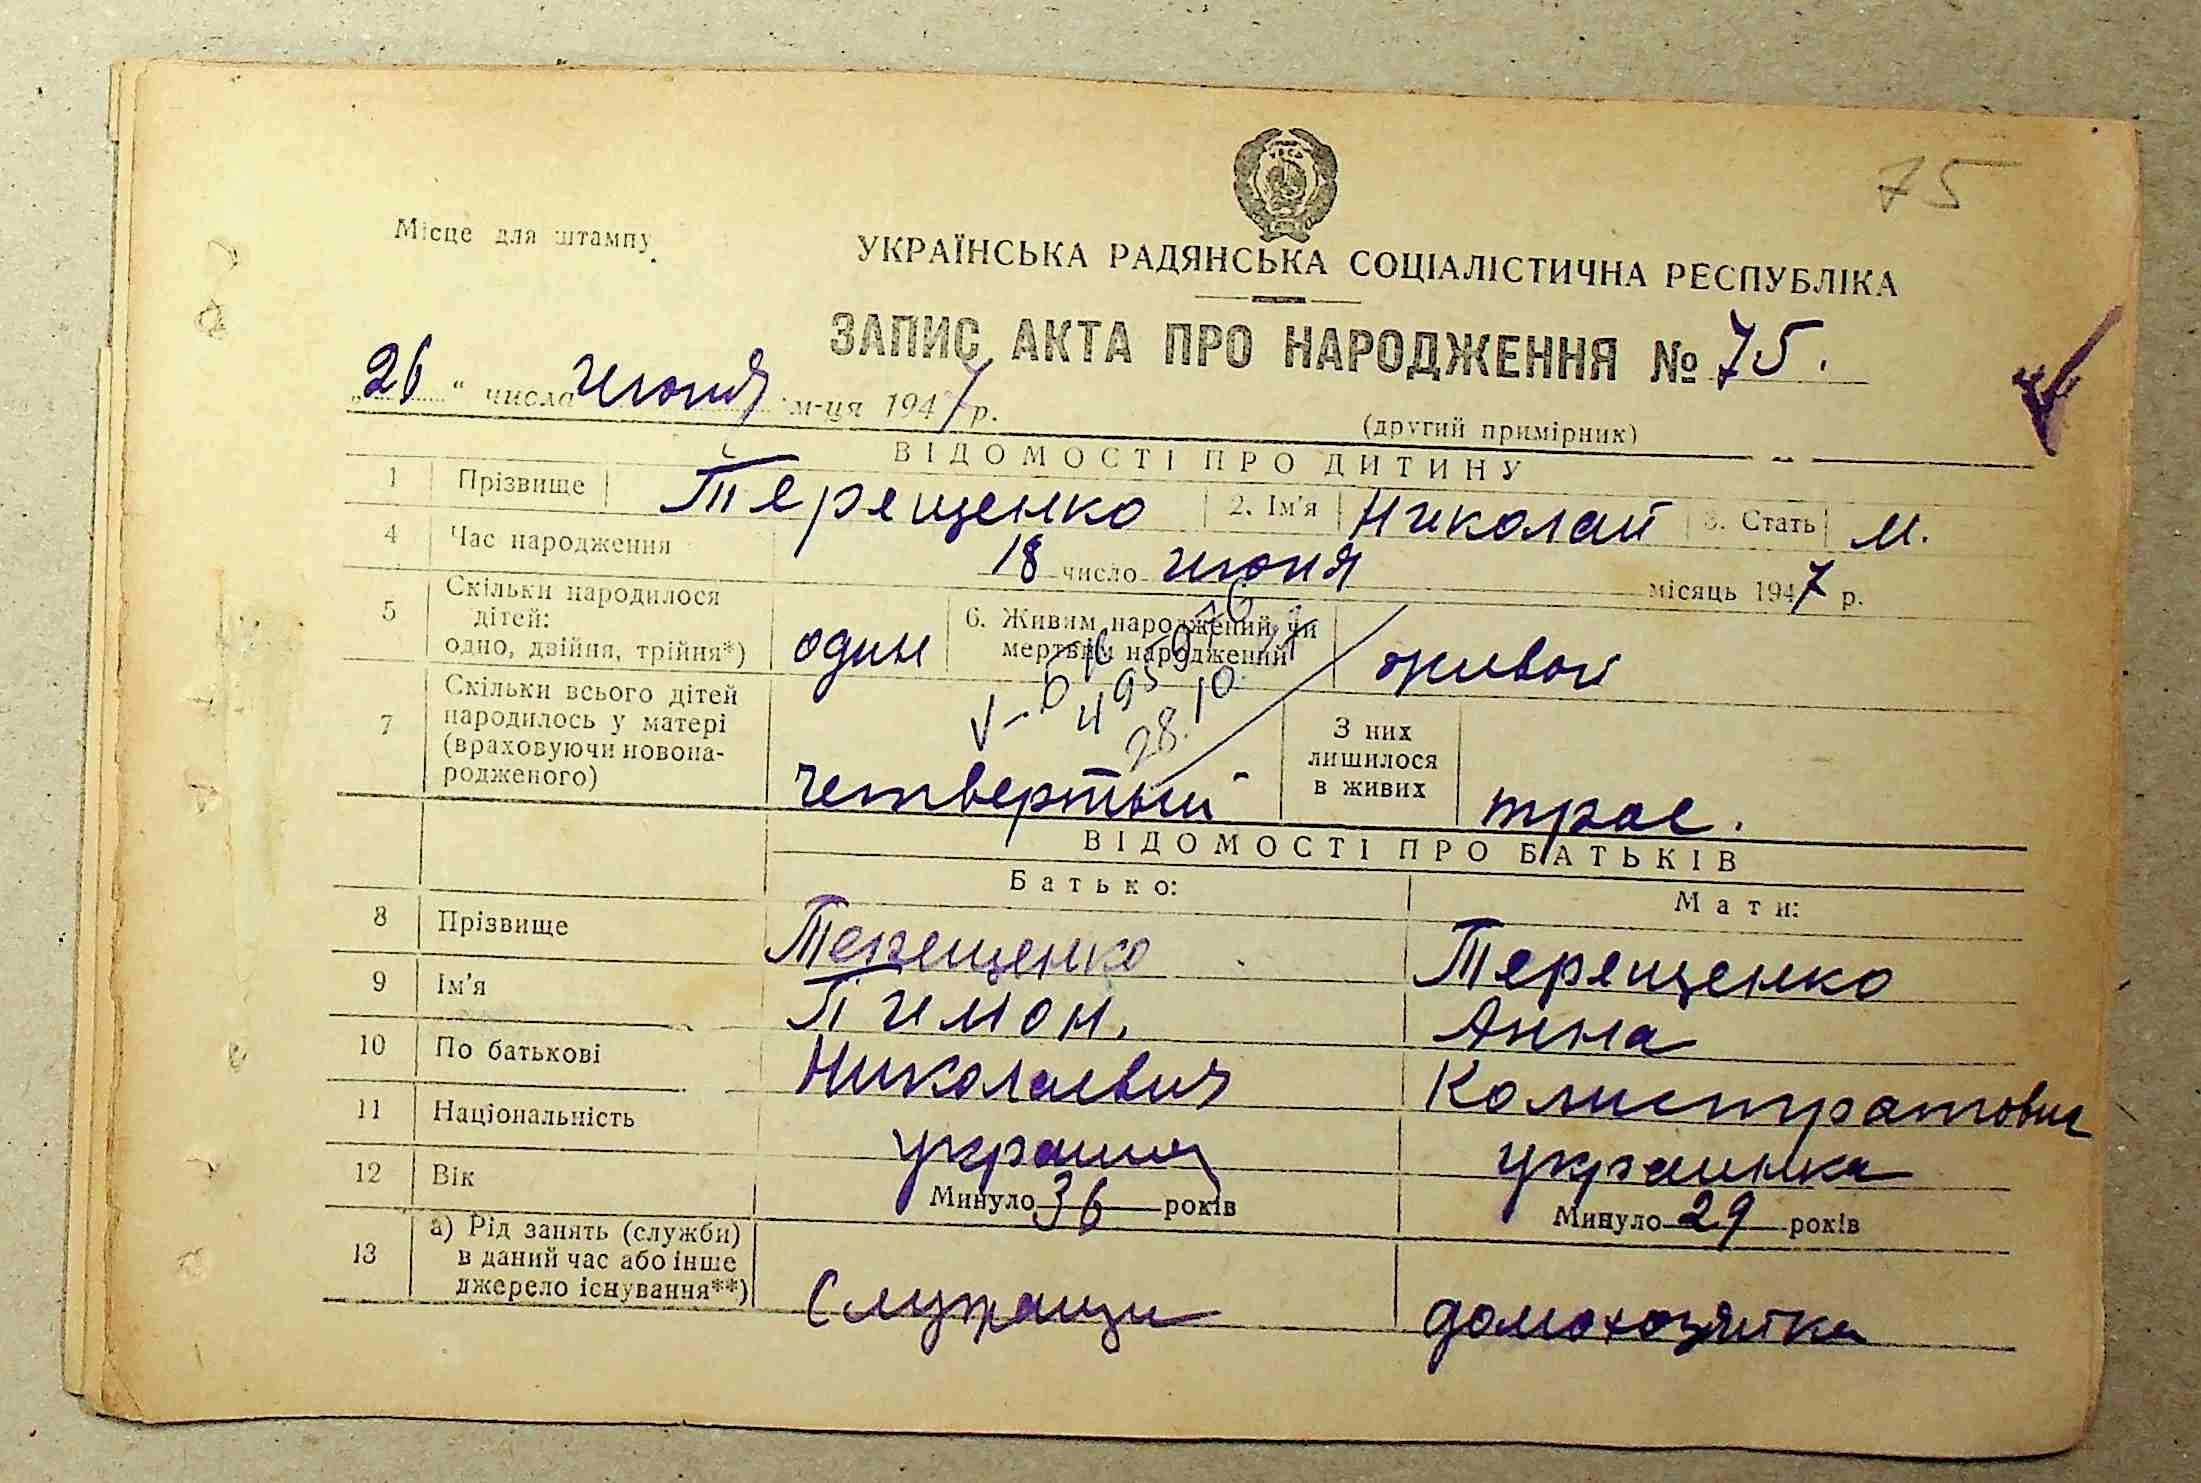 75
Місце для штампу
УКРАЇНСЬКА РАДЯНСЬКА СОЦІАЛІСТИЧНА РЕСПУБЛІКА
ЗАПИС АКТА ПРО НАРОДЖЕННЯ № 75.
„26“ числа июня м-ця 1947 р.
(другий примірник)
ВІДОМОСТІ ПРО ДИТИНУ
1 Прізвище Терещенко 2. Ім'я Николай 3. Стать м.
4 Час народження 18 число июня місяць 1947 р.
5 Скільки народилося
дітей:
одно, двійня, трійня*) один
6. Живим народжений чи
мертвим народжений живой
7 Скільки всього дітей
народилось у матері
(враховуючи новона-
родженого) четвертый
З них
лишилося
в живих трое.
28.10
ВІДОМОСТІ ПРО БАТЬКІВ
Батько: Мати:
8 Прізвище Терещенко Терещенко
9 Ім'я Тимон. Анна
10 По батькові Николаевич Калистратовна
11 Національність украинец украинка
12 Вік Минуло 36 років Минуло 29 років
13 а) Рід занять (служби)
в даний час або інше
джерело існування**) Служащи домохозяйка